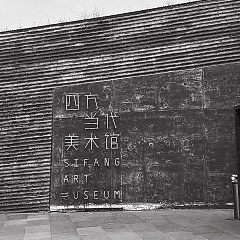 四方
当代
美术馆
SIFANG
ART
MUSEUM